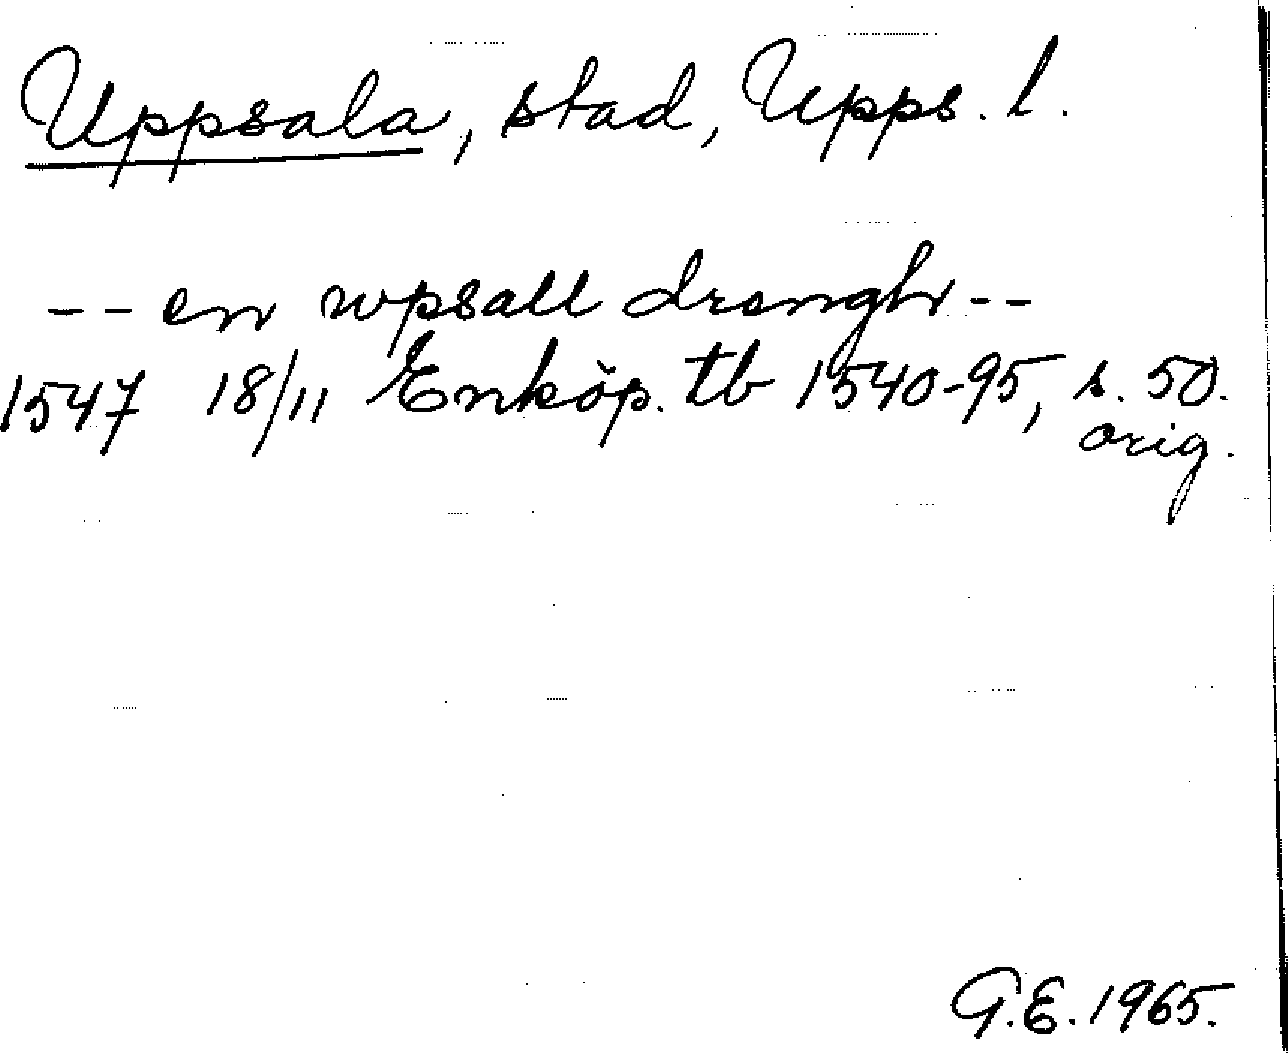 Uppsala, stad, Upps. l.
-- en wpsall drengh --
1547 18/11 Enköp. tb 1540-95, s. 50.
orig.
G.E. 1965.